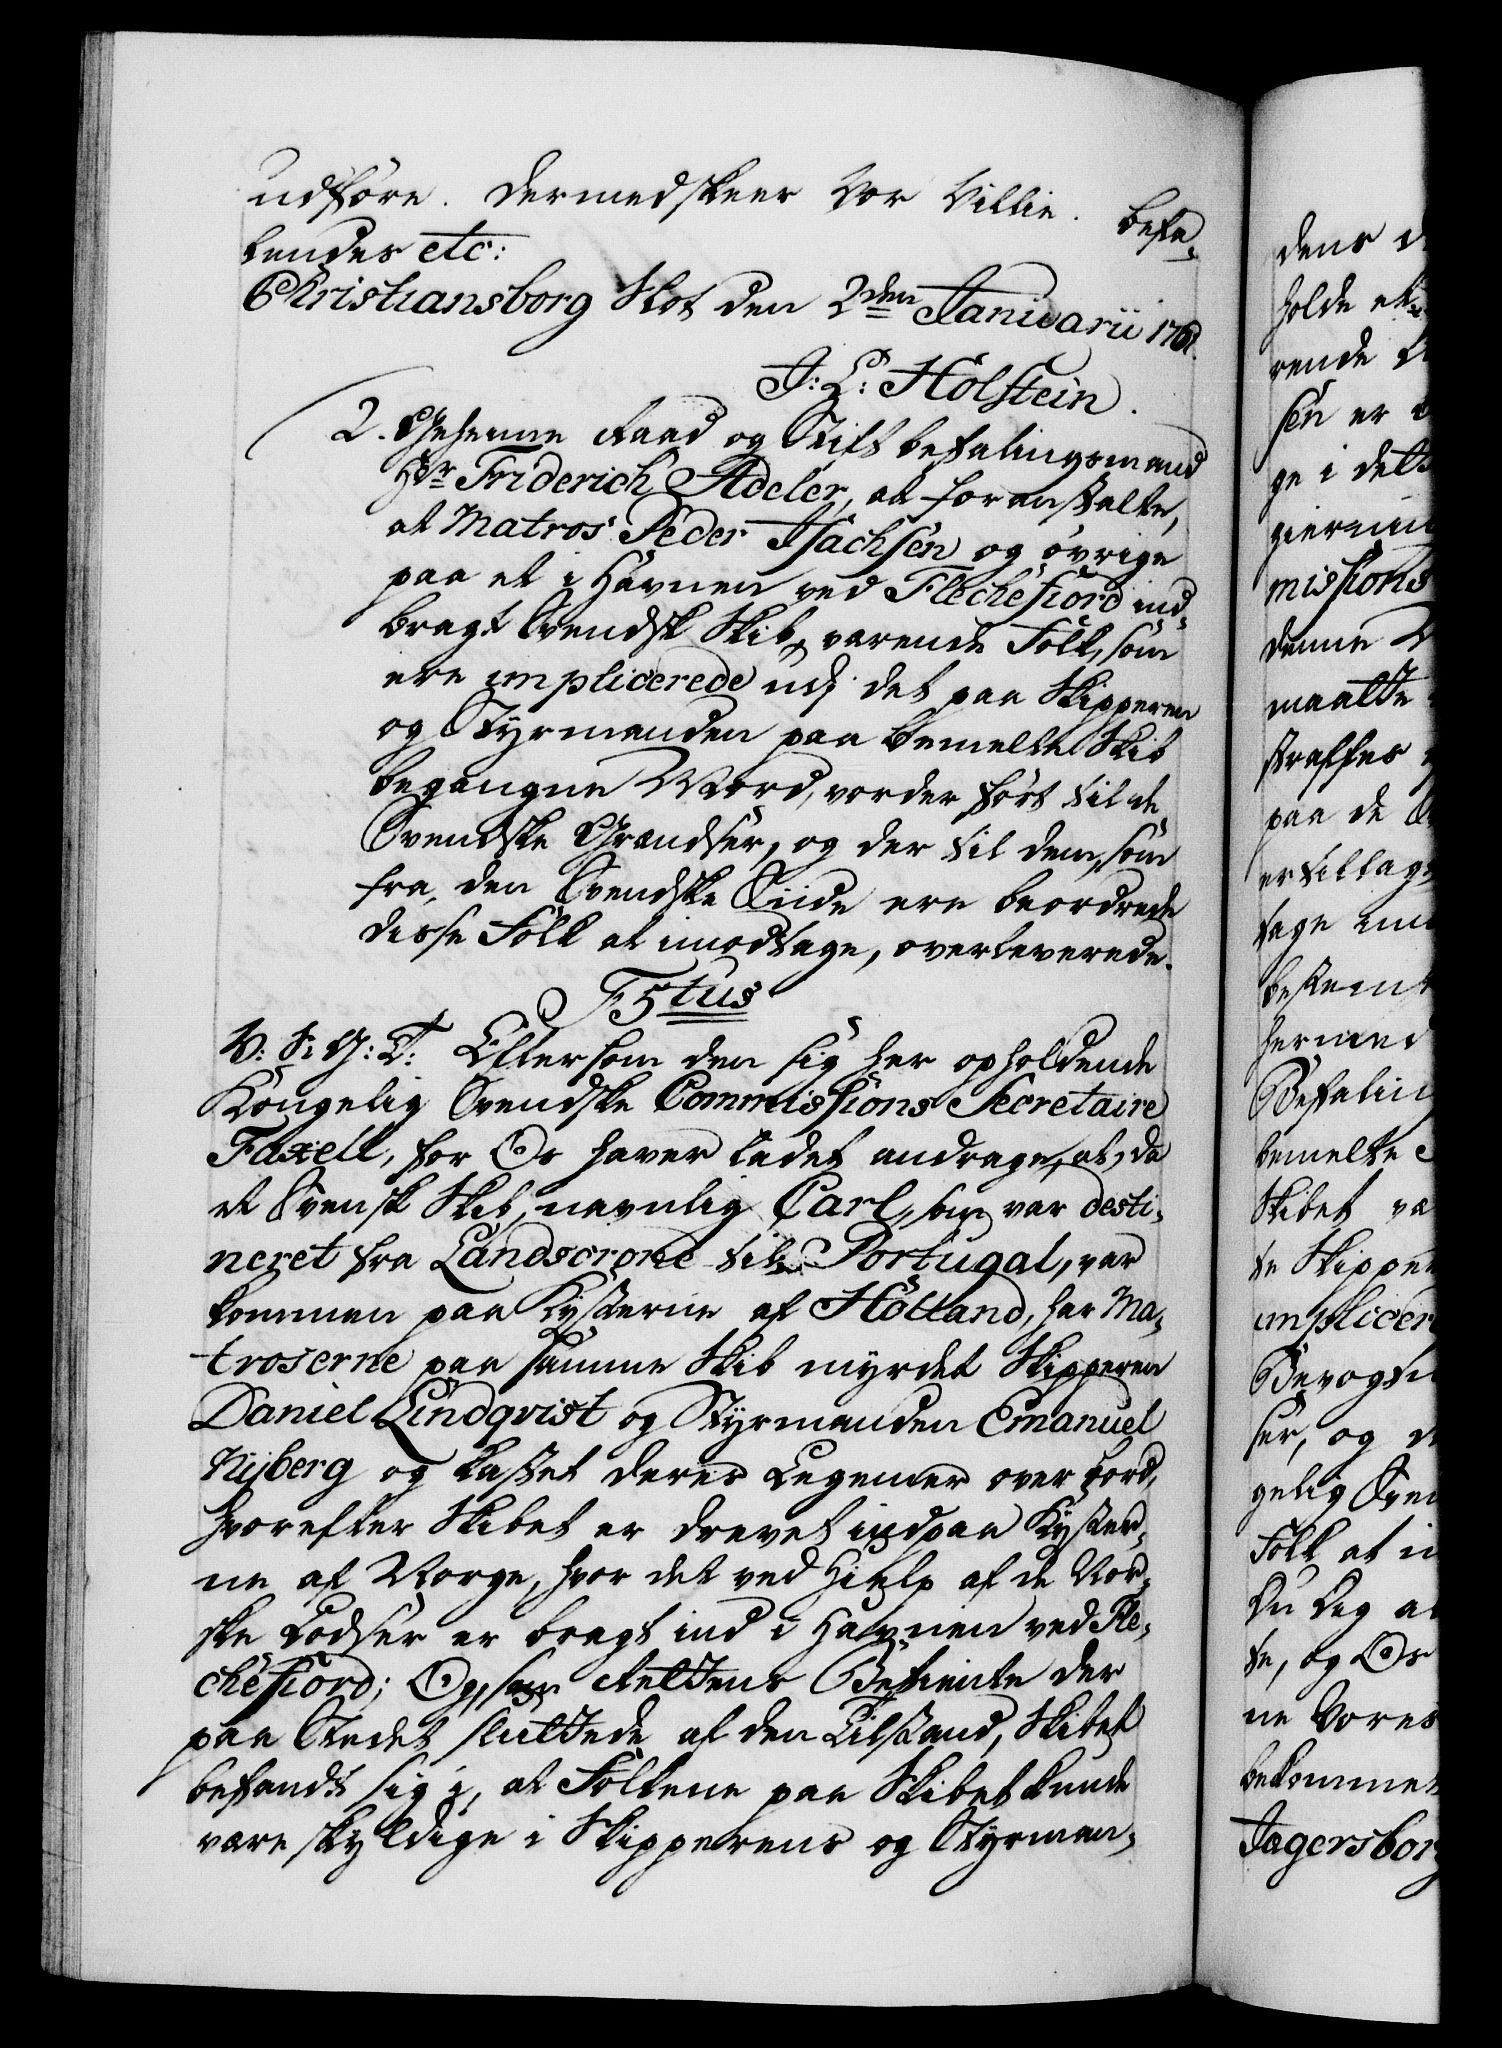 udføre. Dermed skeer Vor Villie. Befa-
lendes etc:
Christiansborg Slot den 2den Januarii 1761.
J: L: Holstein.
2. Geheime Raad og Stiftbefalingsmand
Hr Friderich Adeler, at foranstalte,
at Matros Peder Isachsen og øvrige
paa et i Havnen ved Flechefiord ind-
bragt Svendsk Skib værende Folk, som
ere implicerede udj det paa Skipperen
og Styrmanden paa bemelte Skib
begangne Mord, vorder ført til de
Svendske Grændser, og der til dem, som
fra den Svendske Siide ere beordrede
disse Folk at imodtage, overleverede.
F5tus
V: S: G: T: Eftersom den sig her opholdende
Kongelig Svendske Commissions Secretaire
Faxell, for Os haver ladet andrage, at, da
et Svensk Skib, navnlig Carl, som var desti-
neret fra Landscrone til Portugal, var
kommen paa Kysterne af Holland, har Ma-
troserne paa samme Skib myrdet Skipperen
Daniel Lindqvist og Styrmanden Emanuel
Nyberg og kastet deres Legemer over bord,
hvorefter Skibet er drevet ind paa Kyster-
ne af Norge, hvor det ved Hielp af de Nor-
ske Lodser er bragt ind i Havnen ved Fle-
chefiord; Og, som Rettens Betiente der
paa Stedet sluttede af den Tilstand, Skibet
befandt sig i, at Folkene paa Skibet kunde
være skyldige i Skipperens og Styrman-
dens
holde et
rende
sen er
ge i dette
giernin
missions
denne
maatte
straffes
paa de
er tillagt
tage imod
bestemt
hermed
Befaling
bemelte
Skibet
te Skipper
implicere
Bevogtn
ser, og
gelig Sven
Folk at i
Du Dig
te, og Os
ne Vores
bekommet
Jægersborg